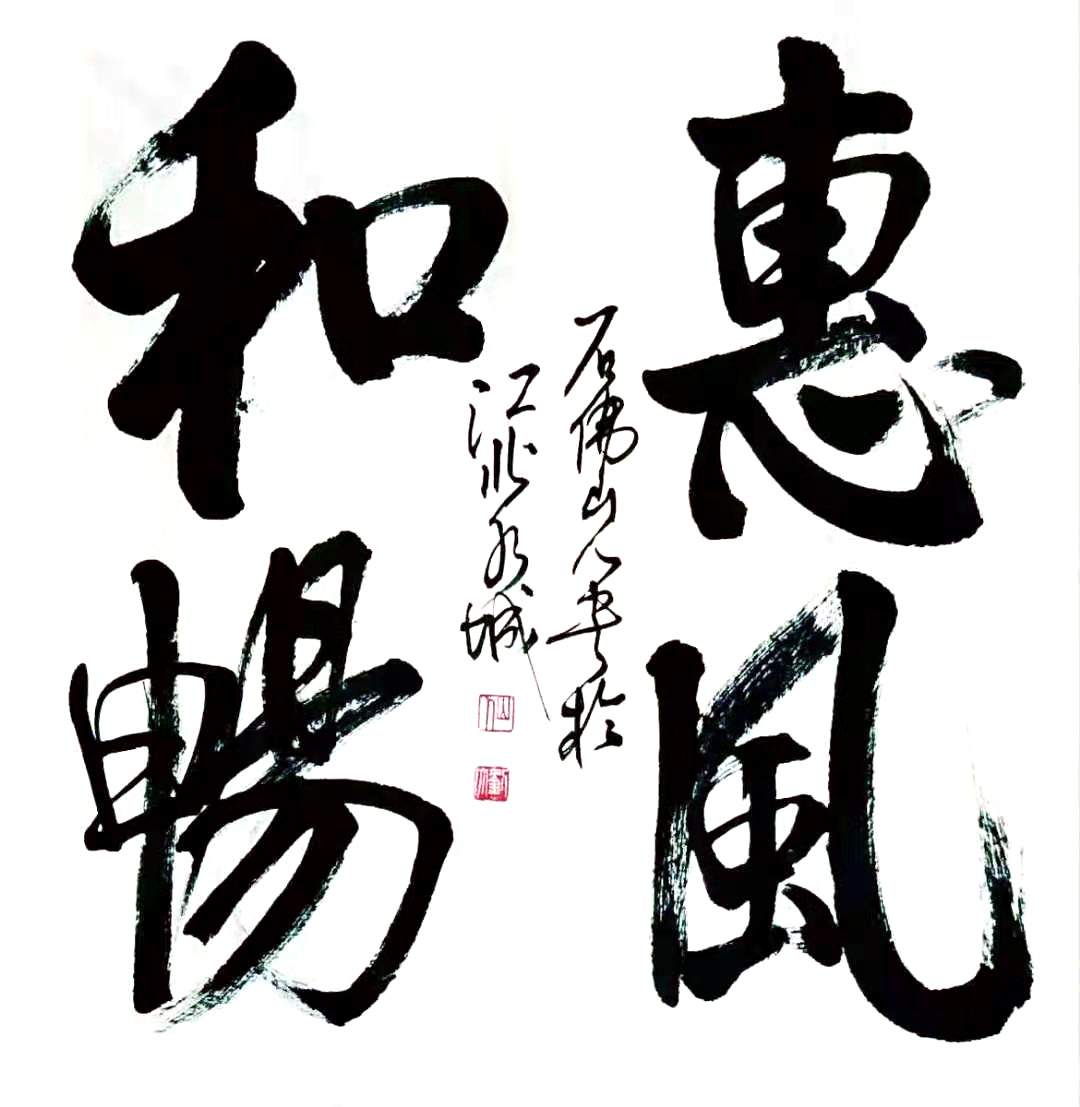 惠風
和暢
石佛山人書於
江北水城